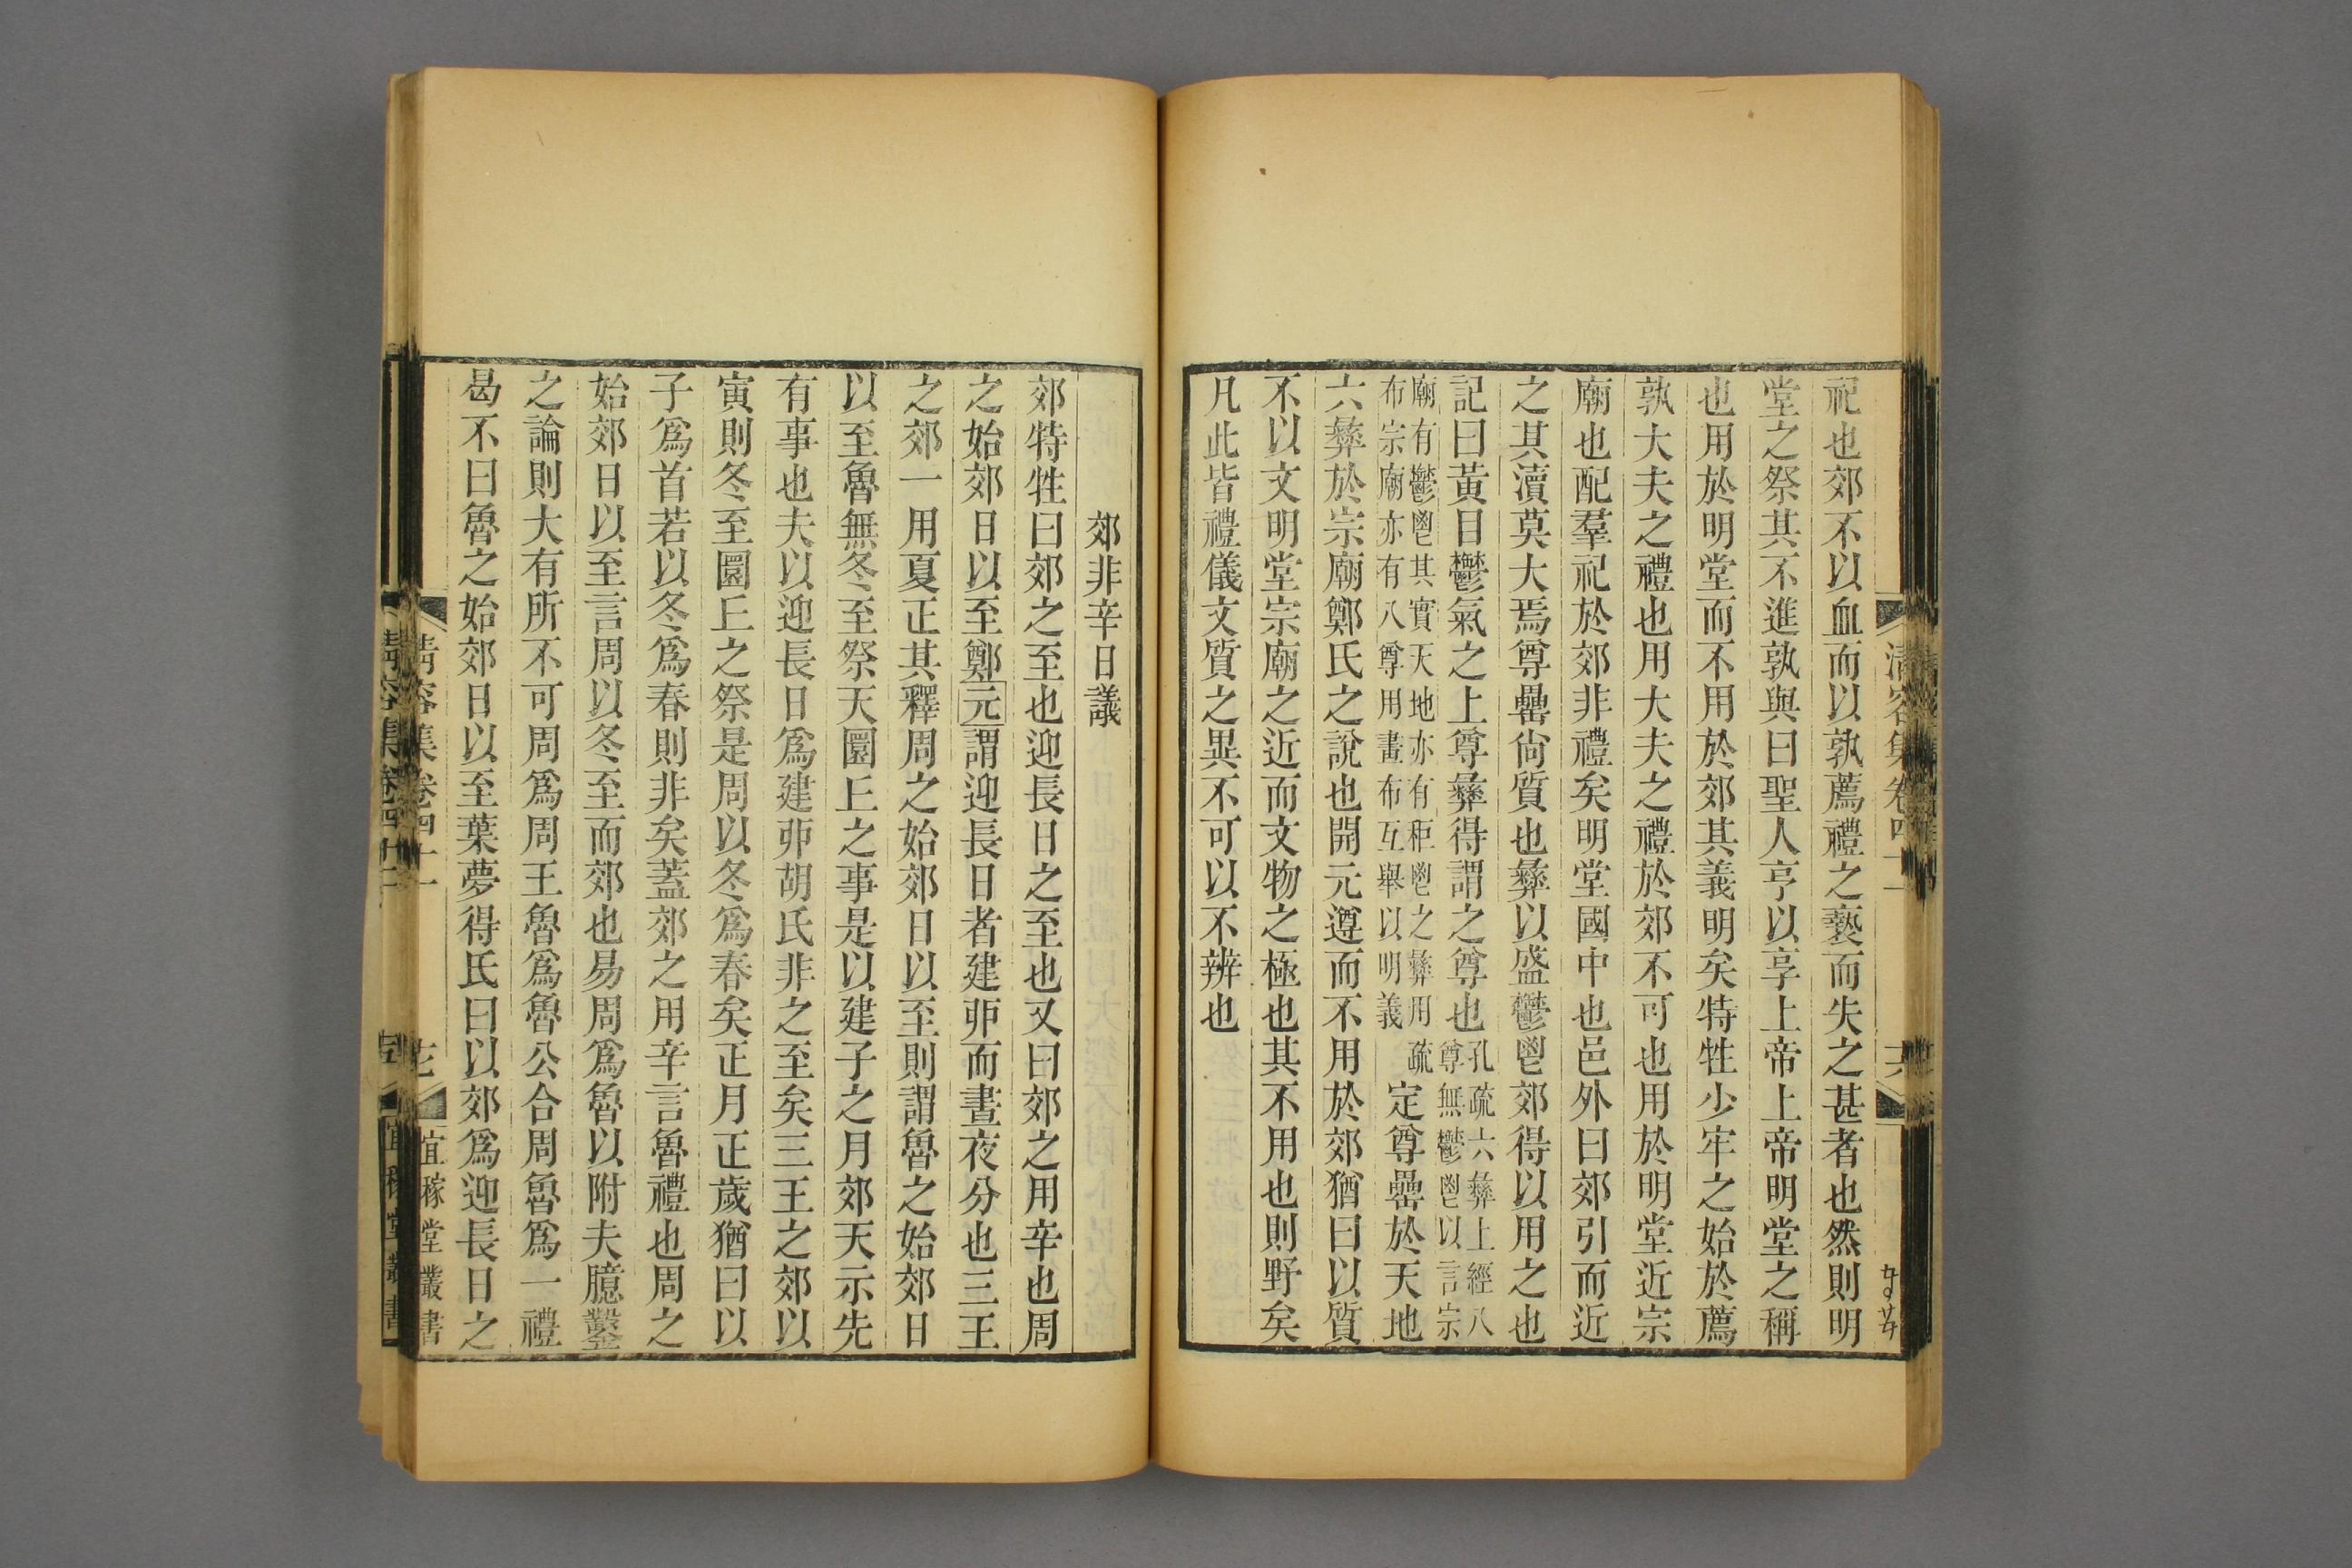 祀也郊不以血而以孰薦禮之褻而失之甚者也然則明
堂之祭其不進孰與曰聖人亨以享上帝上帝明堂之稱
也用於明堂而不用於郊其義明矣特牲少牢之始於薦
孰大夫之禮也用大夫之禮於郊不可也用於明堂近宗
廟也配羣祀於郊非禮矣明堂國中也邑外曰郊引而近
之其瀆莫大焉尊罍尙質也彝以盛鬱鬯郊得以用之也
記曰黃目鬱氣之上尊彝得謂之尊也孔疏六彝上經八
尊無鬱鬯以言宗
廟有鬱鬯其實天地亦有秬鬯之彝用疏
布宗廟亦有八尊用畫布互舉以明義
定尊罍於天地
六彝於宗廟鄭氏之說也開元遵而不用於郊猶曰以質
不以文明堂宗廟之近而文物之極也其不用也則野矣
凡此皆禮儀文質之異不可以不辨也
郊非辛日議
郊特牲曰郊之至也迎長日之至也又曰郊之用辛也周
之始郊日以至鄭元謂迎長日者建丣而晝夜分也三王
之郊一用夏正其釋周之始郊日以至則謂魯之始郊日
以至魯無冬至祭天圜㐀之事是以建子之月郊天示先
有事也夫以迎長日爲建丣胡氏非之至矣三王之郊以
寅則冬至圜㐀之祭是周以冬爲春矣正月正歲猶曰以
子爲首若以冬爲春則非矣蓋郊之用辛言魯禮也周之
始郊日以至言周以冬至而郊也易周爲魯以附夫臆鑿
之論則大有所不可周爲周王魯爲魯公合周魯爲一禮
曷不曰魯之始郊日以至葉夢得氏曰以郊爲迎長日之
清容集卷四十一
宜稼堂叢書